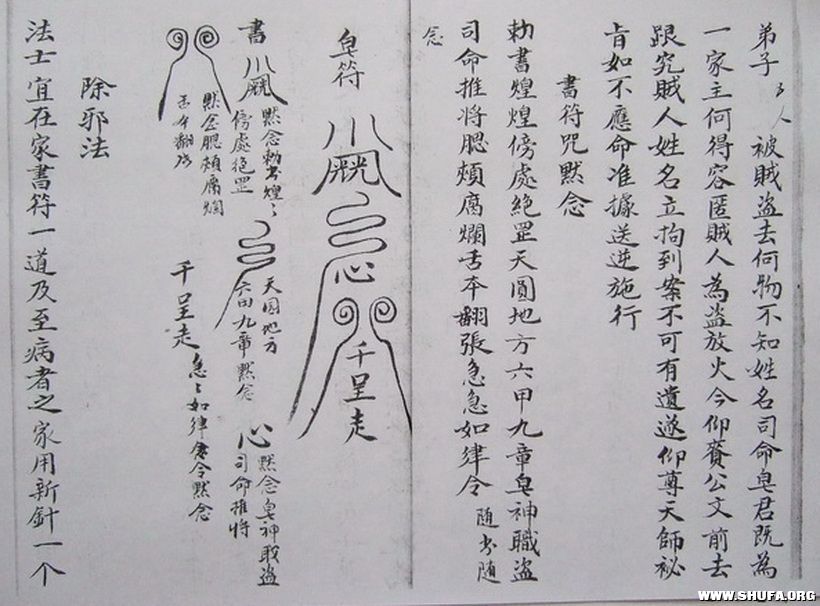 弟子 被賊盜去何物不知姓名司命皂君既為
一家主何得容匿賊人為盜放火今仰賫公文前去
跟究賊人姓名立拘到案不可有遺遂仰尊天師祕
旨如不應命准據送逆施行
書符咒默念
勅書煌煌傍處絕罡天圓地方六甲九章皂神職盜
司命推將腮頰腐爛舌本翻張急急如律令 隨書隨
念
皂符
心
千呈走
書
默念勅書煌々
傍處絕罡
天圓地方
六甲九章默念
心
默念皂神職盜
司命推將
默念腮頰腐爛
舌本翻張
千呈走
急々如律令默念
除邪法
法士宜在家書符一道及至病者之家用新針一个
WWW.SHUFA.ORG